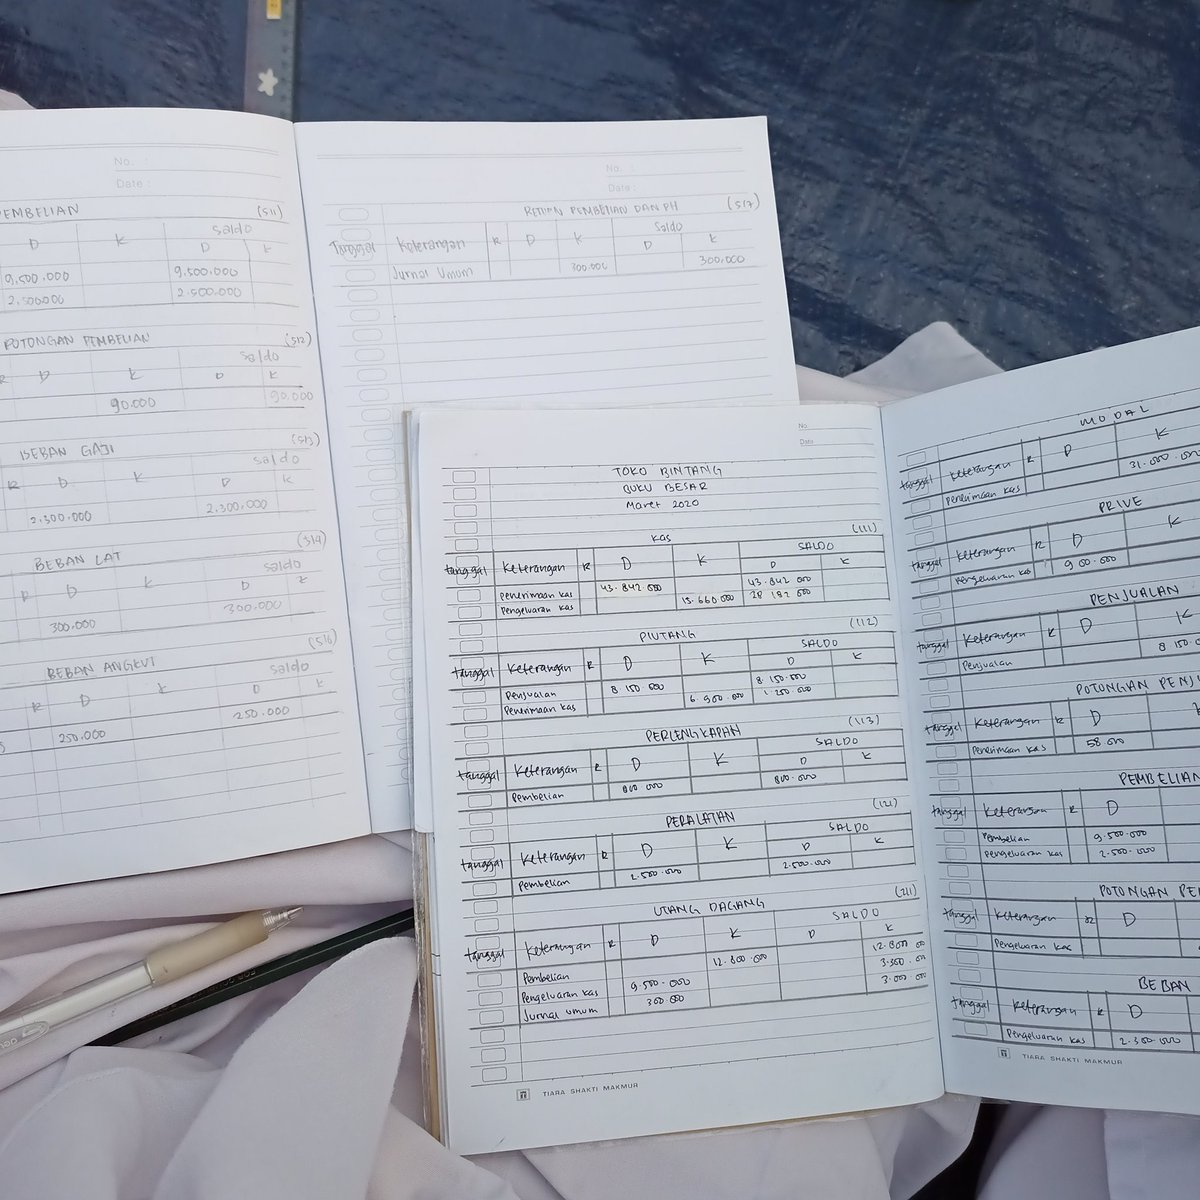 No. :
Date :
PEMBELIAN (511)
D K Saldo
D K
9.500.000 9.500.000
2.500.000 2.500.000
POTONGAN PEMBELIAN (512)
Saldo
R D K D K
90.000 90.000
BEBAN GAJI (513)
Saldo
R D K D K
2.300.000 2.300.000
BEBAN LAT (514)
Saldo
R D K D K
300.000 300.000
BEBAN ANGKUT (516)
Saldo
R D K D K
250.000 250.000
No. :
Date :
RETUR PEMBELIAN DAN PH (517)
Tanggal Keterangan R D K Saldo
D K
Jurnal Umum 300.000 300.000
No
Date
TOKO BINTANG
BUKU BESAR
Maret 2020
Kas (111)
Tanggal Keterangan R D K SALDO
D K
Penerimaan kas 43.842 000 43.842 000
Pengeluaran kas 15.660 000 28 182 000
PIUTANG (112)
Tanggal Keterangan R D K SALDO
D K
Penjualan 8 150 000 8 150.000
Penerimaan kas 6.900 000 1.250.000
PERLENGKAPAN (113)
Tanggal Keterangan R D K SALDO
D K
Pembelian 800 000 800.000
PERALATAN (121)
Tanggal Keterangan R D K SALDO
D K
Pembelian 2.500.000 2.500.000
UTANG DAGANG (211)
Tanggal Keterangan R D K SALDO
D K
Pembelian 12.800.000 12.800 000
Pengeluaran kas 9.500.000 3.300.000
Jurnal umum 300.000 3.000 000
TIARA SHAKTI MAKMUR
MODAL
Tanggal Keterangan R D K
Penerimaan kas 31.000.000
PRIVE
Tanggal Keterangan R D K
Pengeluaran kas 900.000
PENJUALAN
Tanggal Keterangan R D K
Penjualan 8 150 0
POTONGAN PENJU
Tanggal Keterangan R D
Penerimaan kas 58 000
PEMBELIAN
Tanggal Keterangan R D
Pembelian 9.500.000
Pengeluaran kas 2.500.000
POTONGAN PE
Tanggal Keterangan R D
Pengeluaran kas
BEBAN
Tanggal Keterangan R D
Pengeluaran kas 2.300.000
TIARA SHAKTI MAKMUR